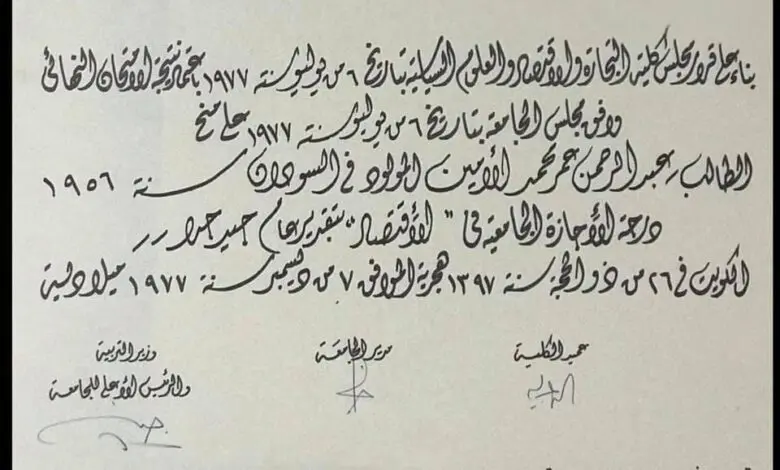 بناء على قرار مجلس كلية التجارة والاقتصاد والعلوم السياسية بتاريخ ٦ من يوليو سنة ١٩٧٧ باعتماد نتيجة الامتحان النهائي
وافق مجلس الجامعة بتاريخ ٦ من يوليو سنة ١٩٧٧ على منح
الطالب / عبد الرحمن عمر محمد الأمين المولود في السودان سنة ١٩٥٦
درجة الأجازة الجامعية في " الأقتصاد " بتقدير عام جيد جدا
الكويت في ٢٦ من ذو الحجة سنة ١٣٩٧ هجرية الموافق ٧ من ديسمبر سنة ١٩٧٧ ميلادية
عميد الكلية
مدير الجامعة
وزير التربية
والرئيس الأعلى للجامعة